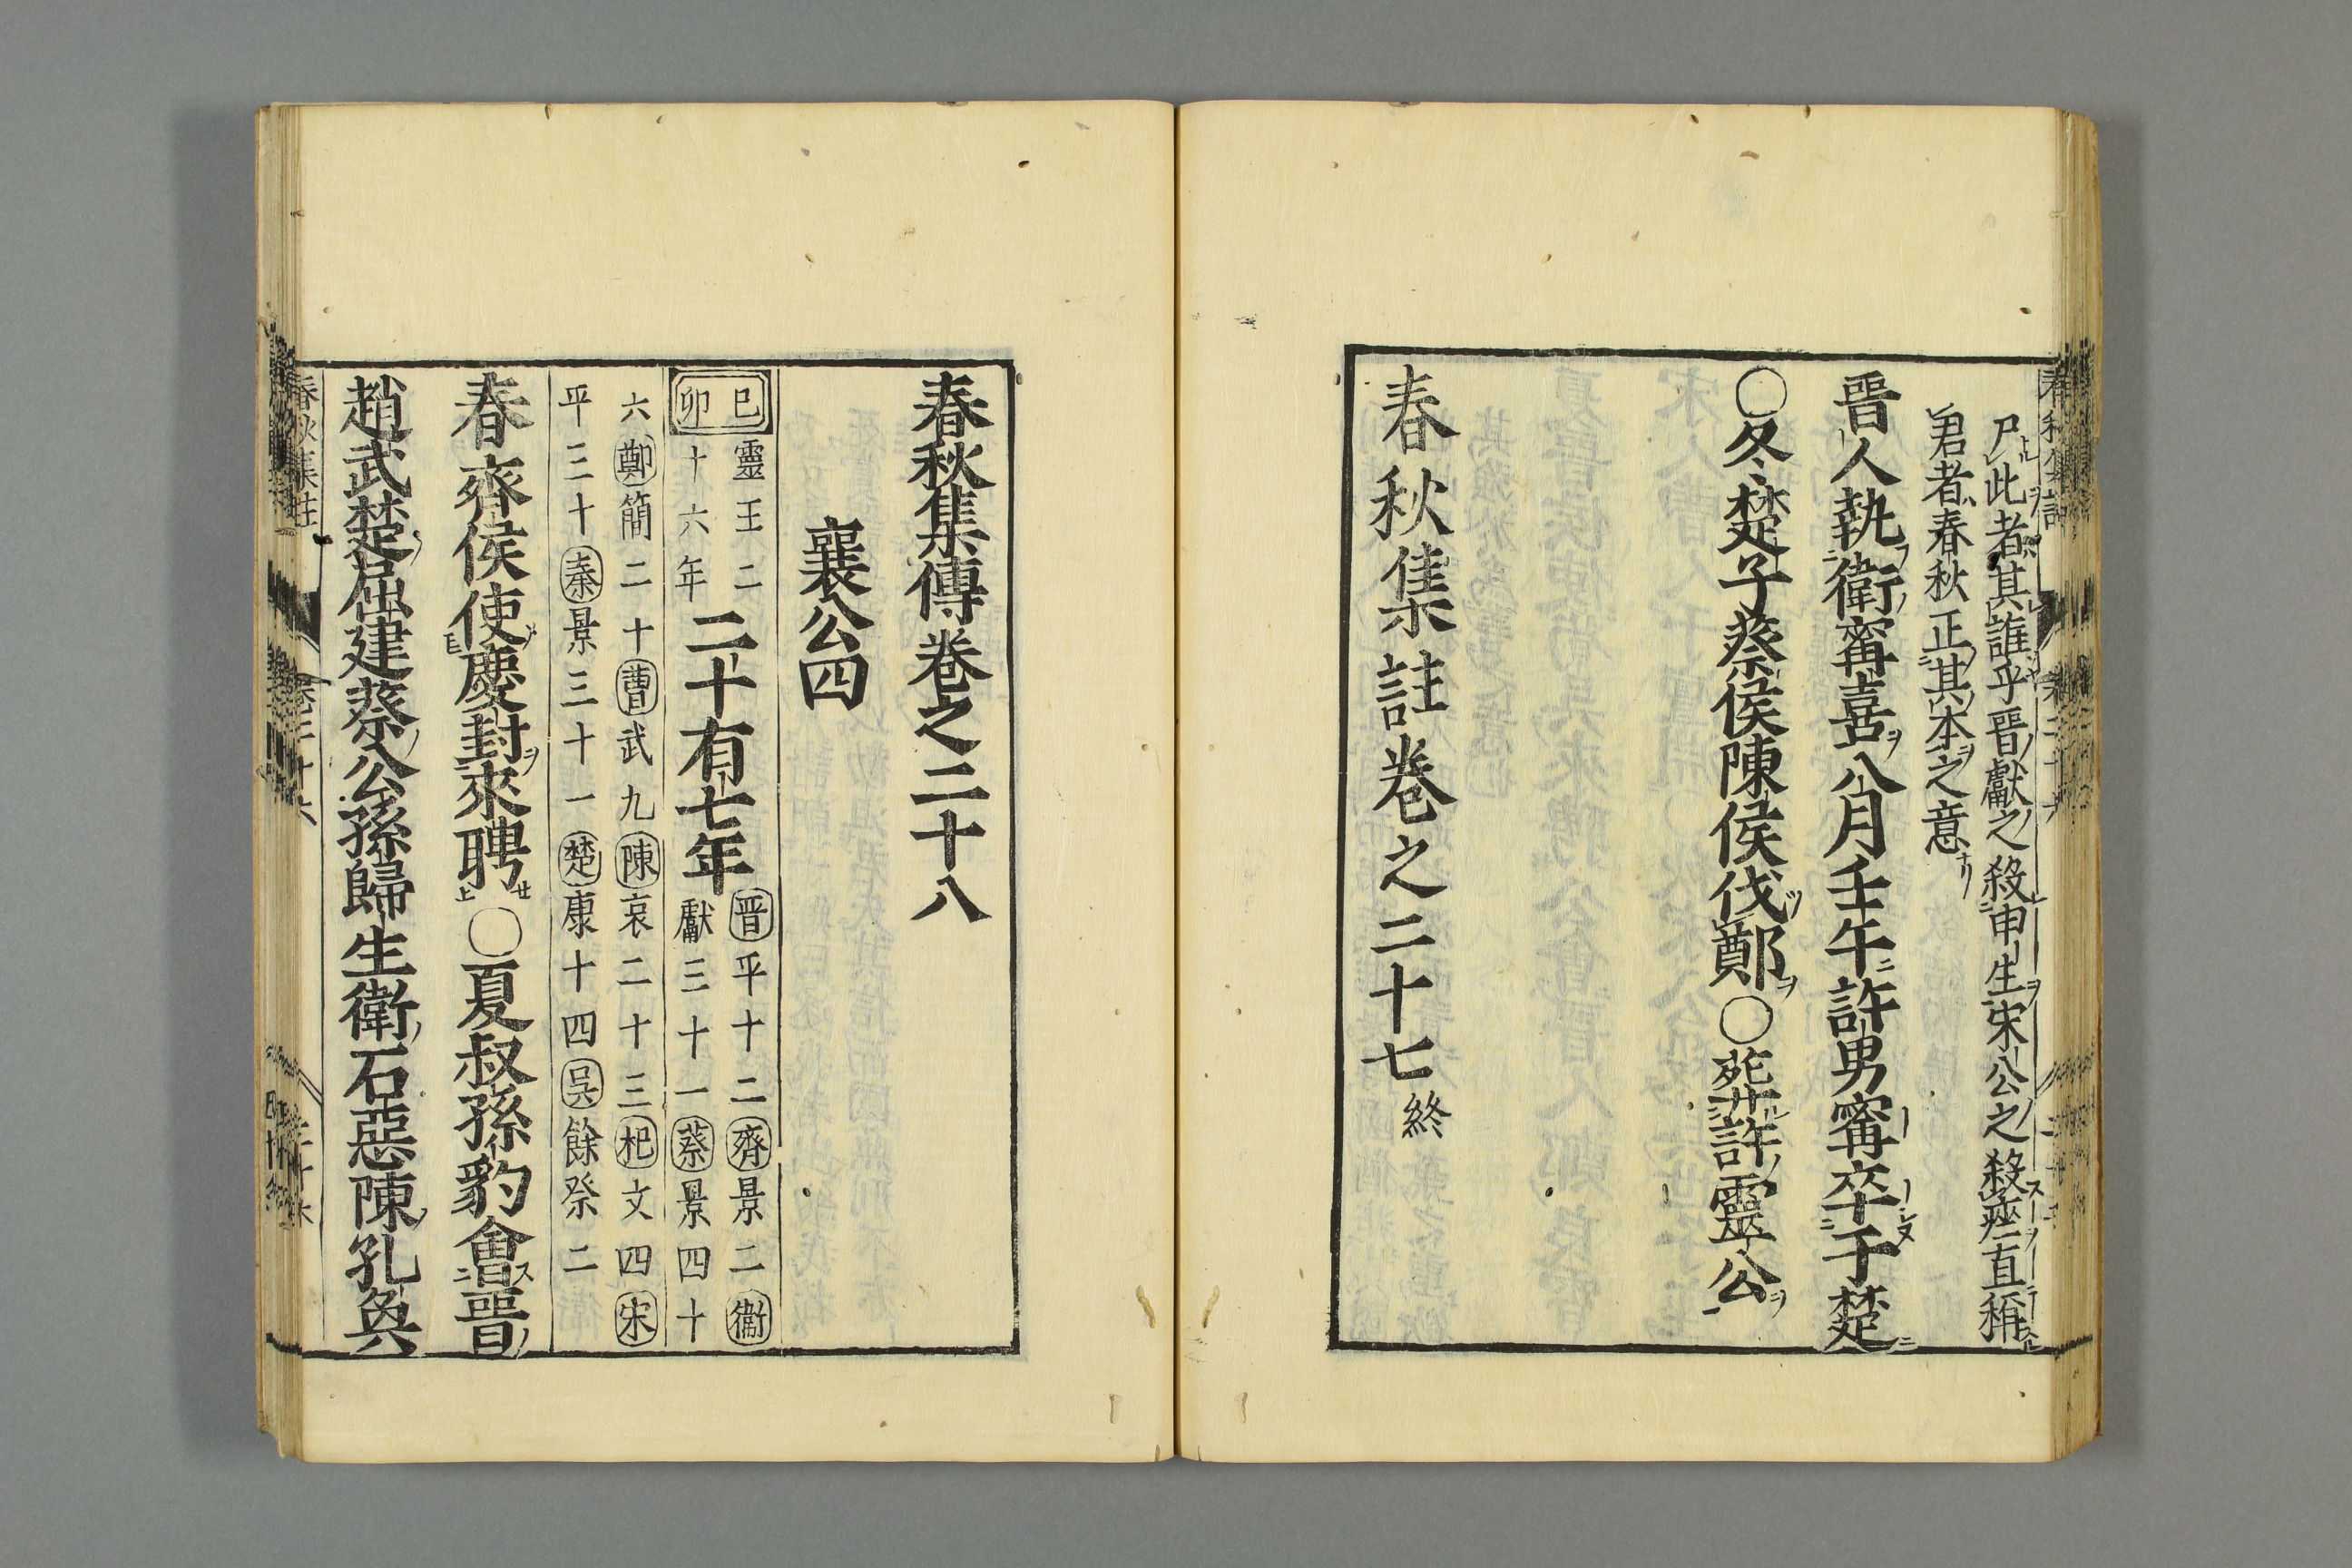 尸此者其誰乎晋獻之殺申生宋公之殺痤直稱
君者春秋正其本之意
晉人執衛甯喜八月壬午許男甯卒于楚
○冬楚子蔡侯陳侯伐鄭○葬許靈公
春秋集註卷之二十七終
春秋集傳卷之二十八
襄公四
巳卯 靈王二十六年 二十有七年 晋平十二齊景二衞獻三十一蔡景四十
六鄭簡二十曹武九陳哀二十三杞文四宋
平三十秦景三十一楚康十四吳餘祭二
春齊侯使慶封來聘○夏叔孫豹會晉
趙武楚屈建蔡公孫歸生衛石惡陳孔奐